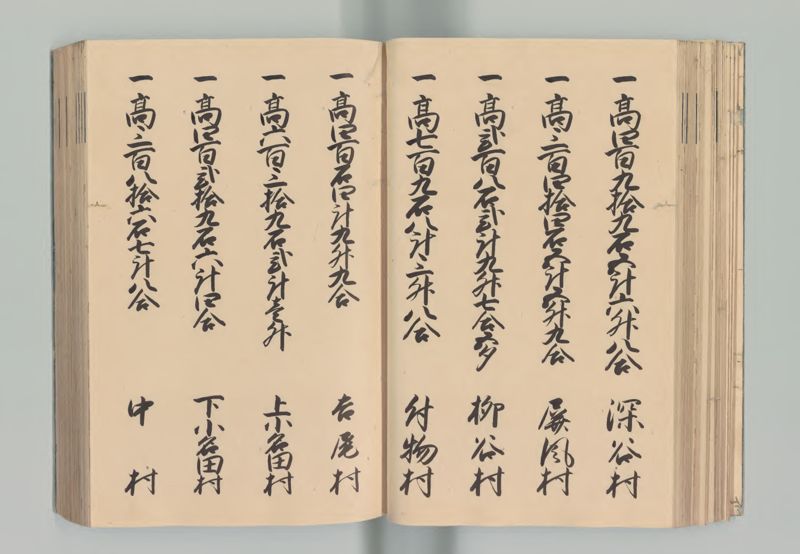 一高四百九拾九石五斗六升八合 深谷村
一高三百四拾四石五斗五升九合 屏風村
一高弐百八石弐斗九升七合五夕 柳谷村
一高七百九石八斗三升八合 付物村
一高四百石四斗九升九合 吉尾村
一高六百三拾九石弐斗壱升 上小名田村
一高四百弐拾九石六斗四合 下小名田村
一高三百八拾六石七斗八合 中村